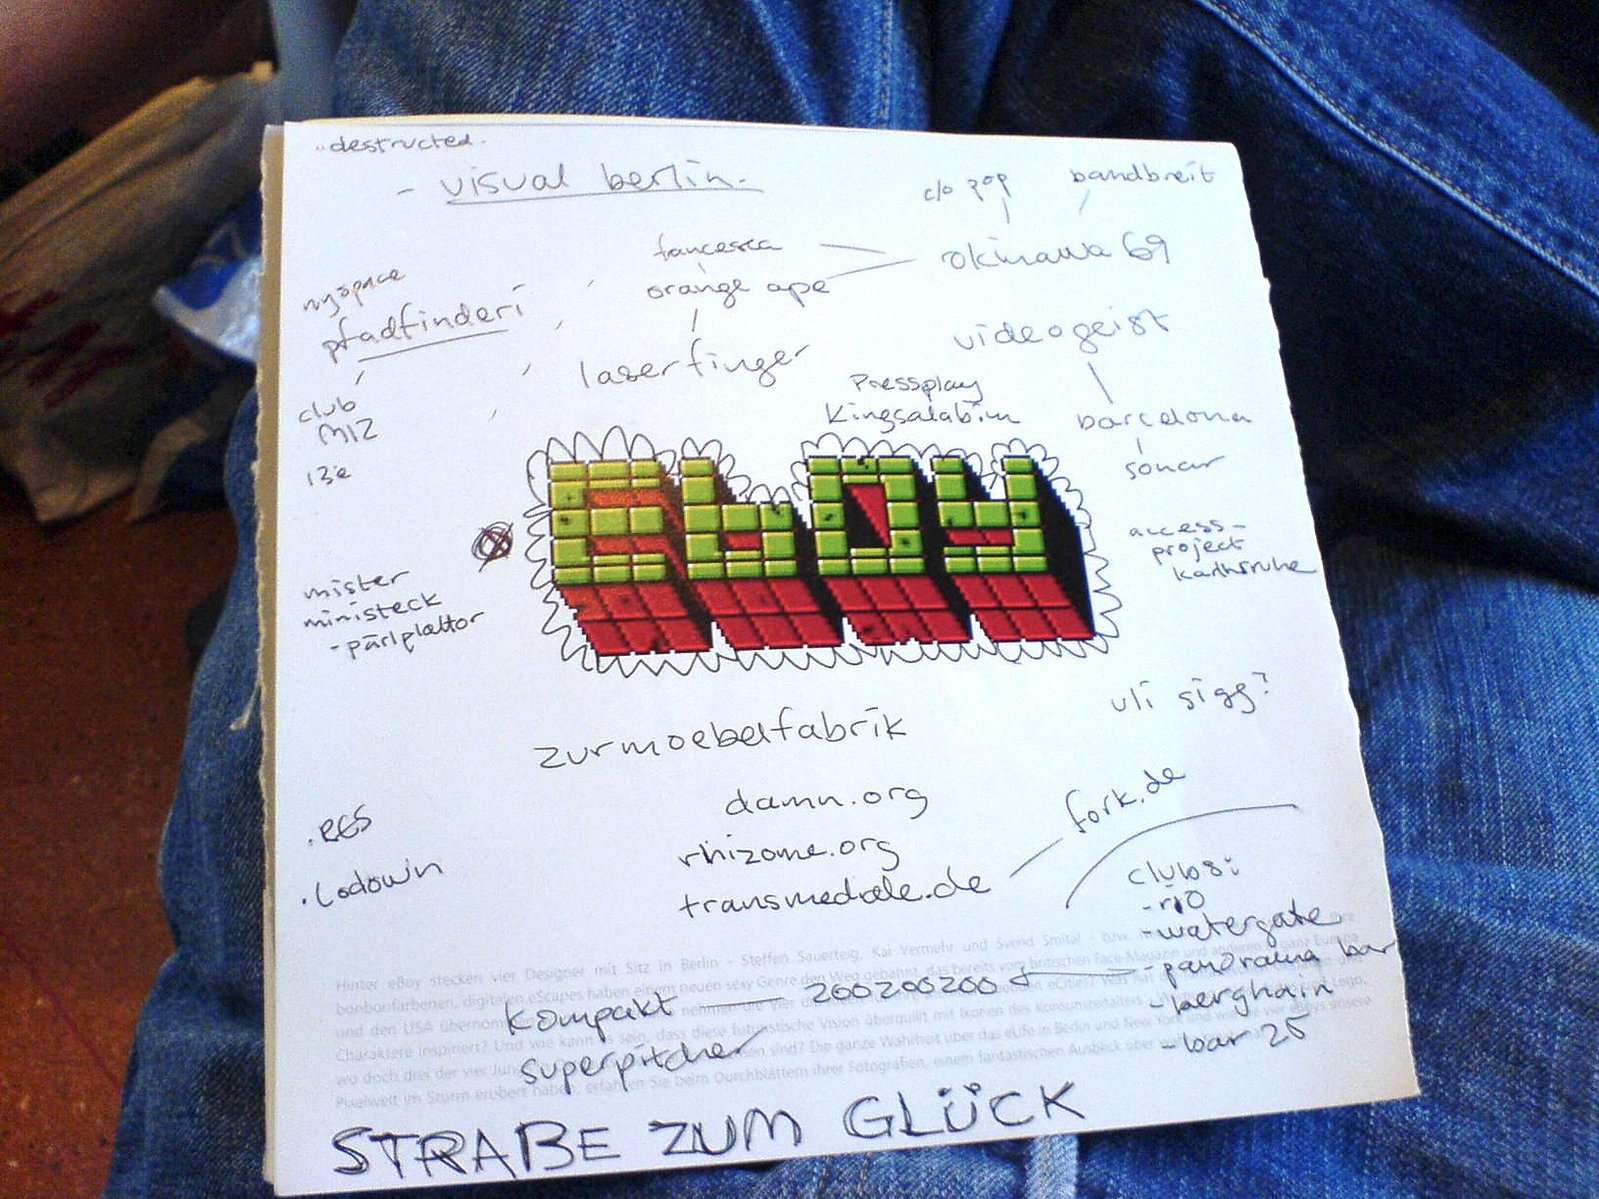 ..destructed.
- visual berlin.
c/o pop
bandbreit
fancesca
okinawa 69
myspace
orange ape
pfadfinderi
videogeist
laserfinger
club
MIZ
Pressplay
Kingsalabim
barcelona
13e
sonar
eboy
access-
project
Karlhsruhe
mister
ministeck
- pärlplattor
uli sigg?
zurmoebelfabrik
damn.org
fork.de
.RES
rhizome.org
.Lodown
transmediale.de
clubs:
- rio
- watergate
- panorama bar
- berghain
- bar 25
Hinter eBoy stecken vier Designer mit Sitz in Berlin - Steffen Sauerteig, Kai Vermehr und Svend Smital - bzw.
bonbonfarbenen, digitalen eScapes haben einem neuen sexy Genre den Weg gebahnt, das bereits vom britischen Face-Magazin und anderen
und den USA
Charaktere inspiriert? Und wie kann es sein, dass diese futuristische Vision überquillt mit Ikonen des Konsumzeitalters
wo doch drei der vier sind? Die ganze Wahrheit über das eLife in Berlin und New York und
Pixelwelt im Sturm erobert haben, erfahren Sie beim Durchblättern ihrer Fotografien, einem fantastischen Ausblick über
kompakt — 200200200
superpitcher
STRAßE ZUM GLÜCK